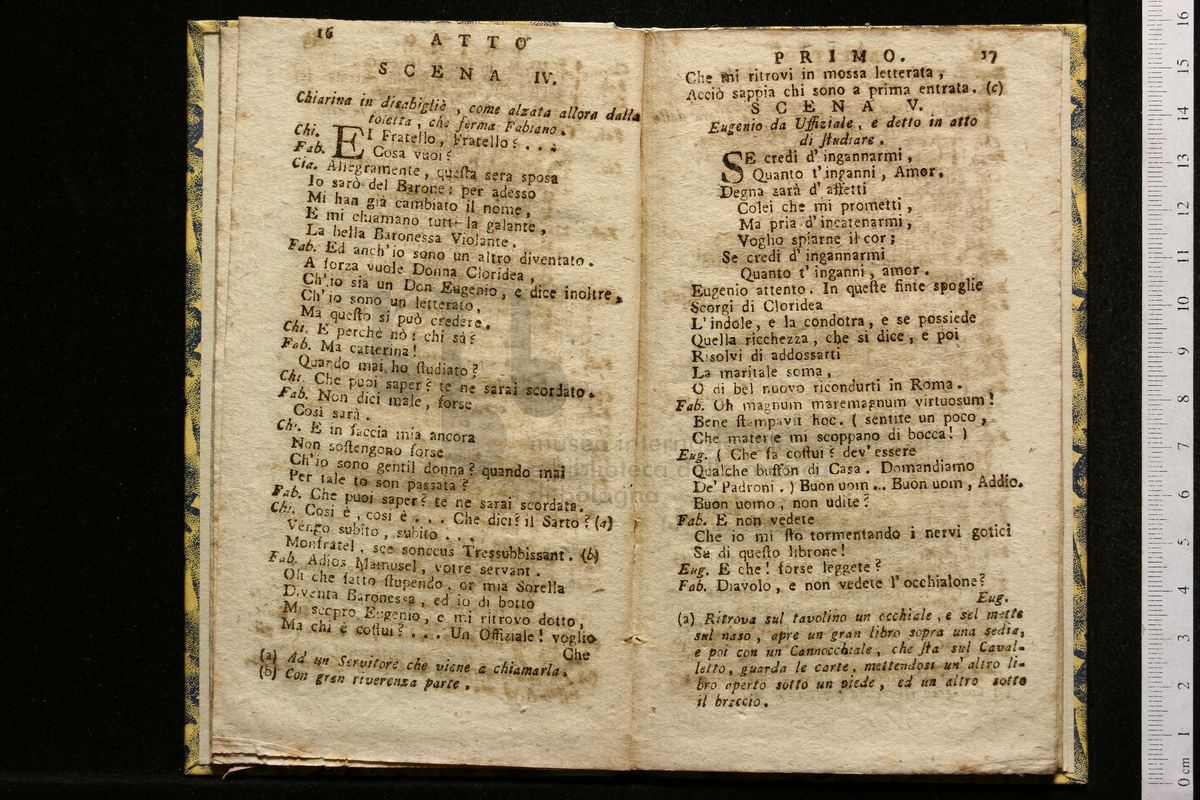 16
ATTO
SCENA IV.
Chiarina in disabigliè, come alzata allora dalla
toletta, che ferma Fabiano.
Chi. EI Fratello, Fratello? . . .
Fab. Cosa vuoi?
Cia. Allegramente, questa sera sposa
Io sarò del Barone: per adesso
Mi han già cambiato il nome,
E mi chiamano tutti la galante,
La bella Baronessa Violante.
Fab. Ed anch'io sono un altro diventato.
A forza vuole Donna Cloridea,
Ch'io sia un Don Eugenio, e dice inoltre,
Ch'io sono un letterato,
Ma questo si può credere.
Chi. E perchè nò: chi sà?
Fab. Ma catterina!
Quando mai ho studiato?
Chi. Che puoi saper? te ne sarai scordato.
Fab. Non dici male, forse
Così sarà.
Chi. E in faccia mia ancora
Non sostengono forse
Ch'io sono gentil donna? quando mai
Per tale io son passata?
Fab. Che puoi saper? te ne sarai scordata.
Chi. Così è, così è . . . Che dici? il Sarto? (a)
Vengo subito, subito . . .
Monfratel, sge sonccus Tressubbissant. (b)
Fab. Adios Mamusel, votre servant.
Oh che fatto stupendo, or mia Sorella
Diventa Baronessa, ed io di botto
Mi scopro Eugenio, e mi ritrovo dotto,
Ma chi è costui? . . . Un Offiziale! voglio
Che
(a) Ad un Servitore che viene a chiamarla.
(b) Con gran riverenza parte.
PRIMO. 17
Che mi ritrovi in mossa letterata,
Acciò sappia chi sono a prima entrata. (c)
SCENA V.
Eugenio da Uffiziale, e detto in atto
di studiare.
SE credi d'ingannarmi,
Quanto t'inganni, Amor.
Degna sarà d'affetti
Colei che mi prometti,
Ma pria d'incatenarmi,
Voglio spiarne il cor;
Se credi d'ingannarmi
Quanto t'inganni, amor.
Eugenio attento. In queste finte spoglie
Scorgi di Cloridea
L'indole, e la condotra, e se possiede
Quella ricchezza, che si dice, e poi
Risolvi di addossarti
La maritale soma,
O di bel nuovo ricondurti in Roma.
Fab. Oh magnum maremagnum virtuosum!
Bene stampavit hoc. (sentite un poco,
Che materie mi scoppano di bocca!)
Eug. (Che fa costui? dev'essere
Qualche buffon di Casa. Domandiamo
De' Padroni.) Buon uom ... Buon uom, Addio.
Buon uomo, non udite?
Fab. E non vedete
Che io mi sto tormentando i nervi gotici
Su di questo librone!
Eug. E che! forse leggete?
Fab. Diavolo, e non vedete l'occhialone?
Eug.
(a) Ritrova sul tavolino un occhiale, e sel mette
sul naso, apre un gran libro sopra una sedia,
e poi con un Cannocchiale, che sta sul Caval-
letto, guarda le carte, mettendosi un'altro li-
bro aperto sotto un piede, ed un altro sotto
il braccio.